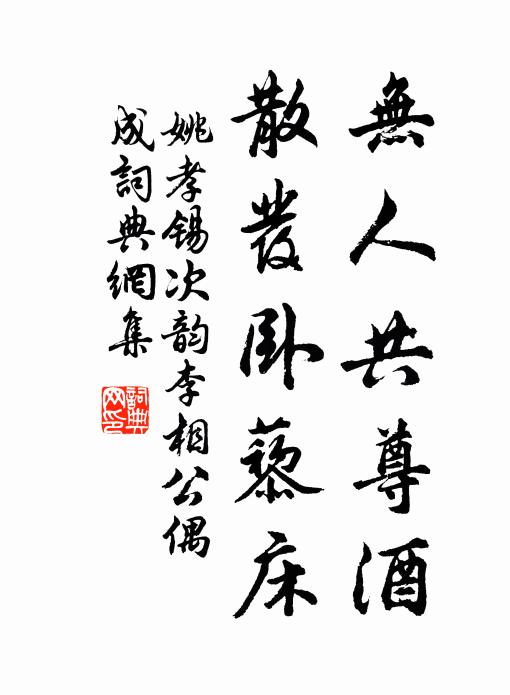 無人共尊酒
散發卧藜床
姚孝錫次韵李相公偶
成詞典網集
詞典网印